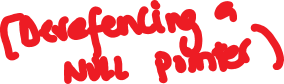 (Derefencing a
Null pointer)